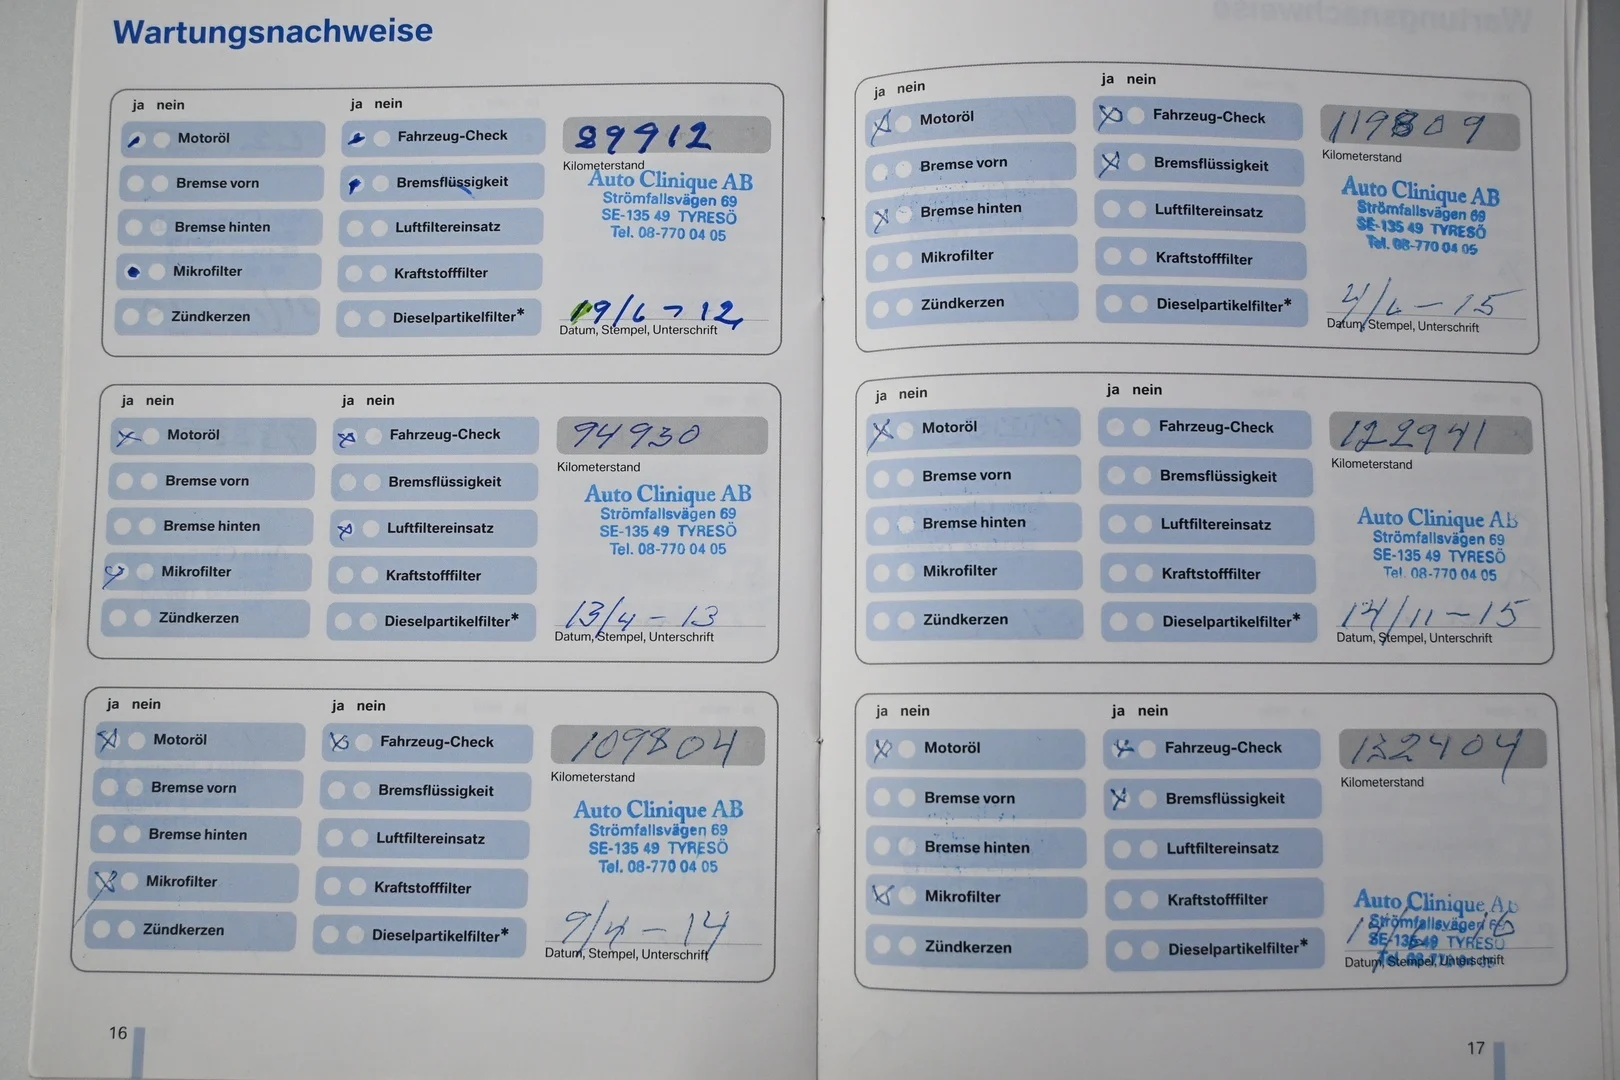 Wartungsnachweise
ja nein
ja nein
Motoröl
Fahrzeug-Check
89912
Kilometerstand
Bremse vorn
Bremsflüssigkeit
Auto Clinique AB
Strömfallsvägen 69
SE-135 49 TYRESÖ
Tel. 08-770 04 05
Bremse hinten
Luftfiltereinsatz
Mikrofilter
Kraftstofffilter
Zündkerzen
Dieselpartikelfilter*
19/6 - 12
Datum, Stempel, Unterschrift
ja nein
ja nein
Motoröl
Fahrzeug-Check
94930
Kilometerstand
Bremse vorn
Bremsflüssigkeit
Auto Clinique AB
Strömfallsvägen 69
SE-135 49 TYRESÖ
Tel. 08-770 04 05
Bremse hinten
Luftfiltereinsatz
Mikrofilter
Kraftstofffilter
Zündkerzen
Dieselpartikelfilter*
13/4 - 13
Datum, Stempel, Unterschrift
ja nein
ja nein
Motoröl
Fahrzeug-Check
109804
Kilometerstand
Bremse vorn
Bremsflüssigkeit
Auto Clinique AB
Strömfallsvägen 69
SE-135 49 TYRESÖ
Tel. 08-770 04 05
Bremse hinten
Luftfiltereinsatz
Mikrofilter
Kraftstofffilter
Zündkerzen
Dieselpartikelfilter*
9/4 - 14
Datum, Stempel, Unterschrift
16
ja nein
ja nein
Motoröl
Fahrzeug-Check
Kilometerstand
Bremse vorn
Bremsflüssigkeit
Auto Clinique AB
Strömfallsvägen 69
SE-135 49 TYRESÖ
Tel. 08-770 04 05
Bremse hinten
Luftfiltereinsatz
Mikrofilter
Kraftstofffilter
Zündkerzen
Dieselpartikelfilter*
- 15
Datum, Stempel, Unterschrift
ja nein
ja nein
Motoröl
Fahrzeug-Check
122941
Kilometerstand
Bremse vorn
Bremsflüssigkeit
Auto Clinique AB
Strömfallsvägen 69
SE-135 49 TYRESÖ
Tel. 08-770 04 05
Bremse hinten
Luftfiltereinsatz
Mikrofilter
Kraftstofffilter
Zündkerzen
Dieselpartikelfilter*
14/11 - 15
Datum, Stempel, Unterschrift
ja nein
ja nein
Motoröl
Fahrzeug-Check
132404
Kilometerstand
Bremse vorn
Bremsflüssigkeit
Bremse hinten
Luftfiltereinsatz
Mikrofilter
Kraftstofffilter
Auto Clinique AB
Strömfallsvägen 69
SE-135 49 TYRESÖ
Tel. 08-770 04 05
Zündkerzen
Dieselpartikelfilter*
Datum, Stempel, Unterschrift
17